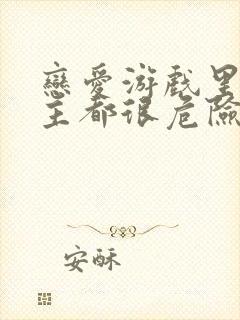 戀愛游戲里
主都很危險
安酥